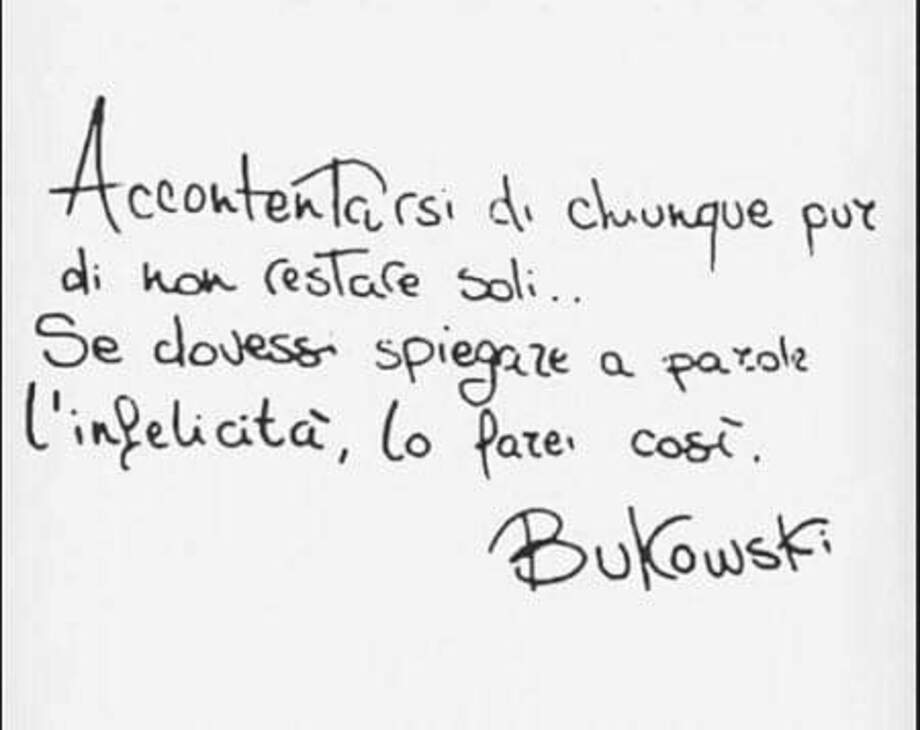 Accontentarsi di chiunque pur
di non restare soli..
Se dovessi spiegare a parole
l'infelicità, lo farei così.
Bukowski